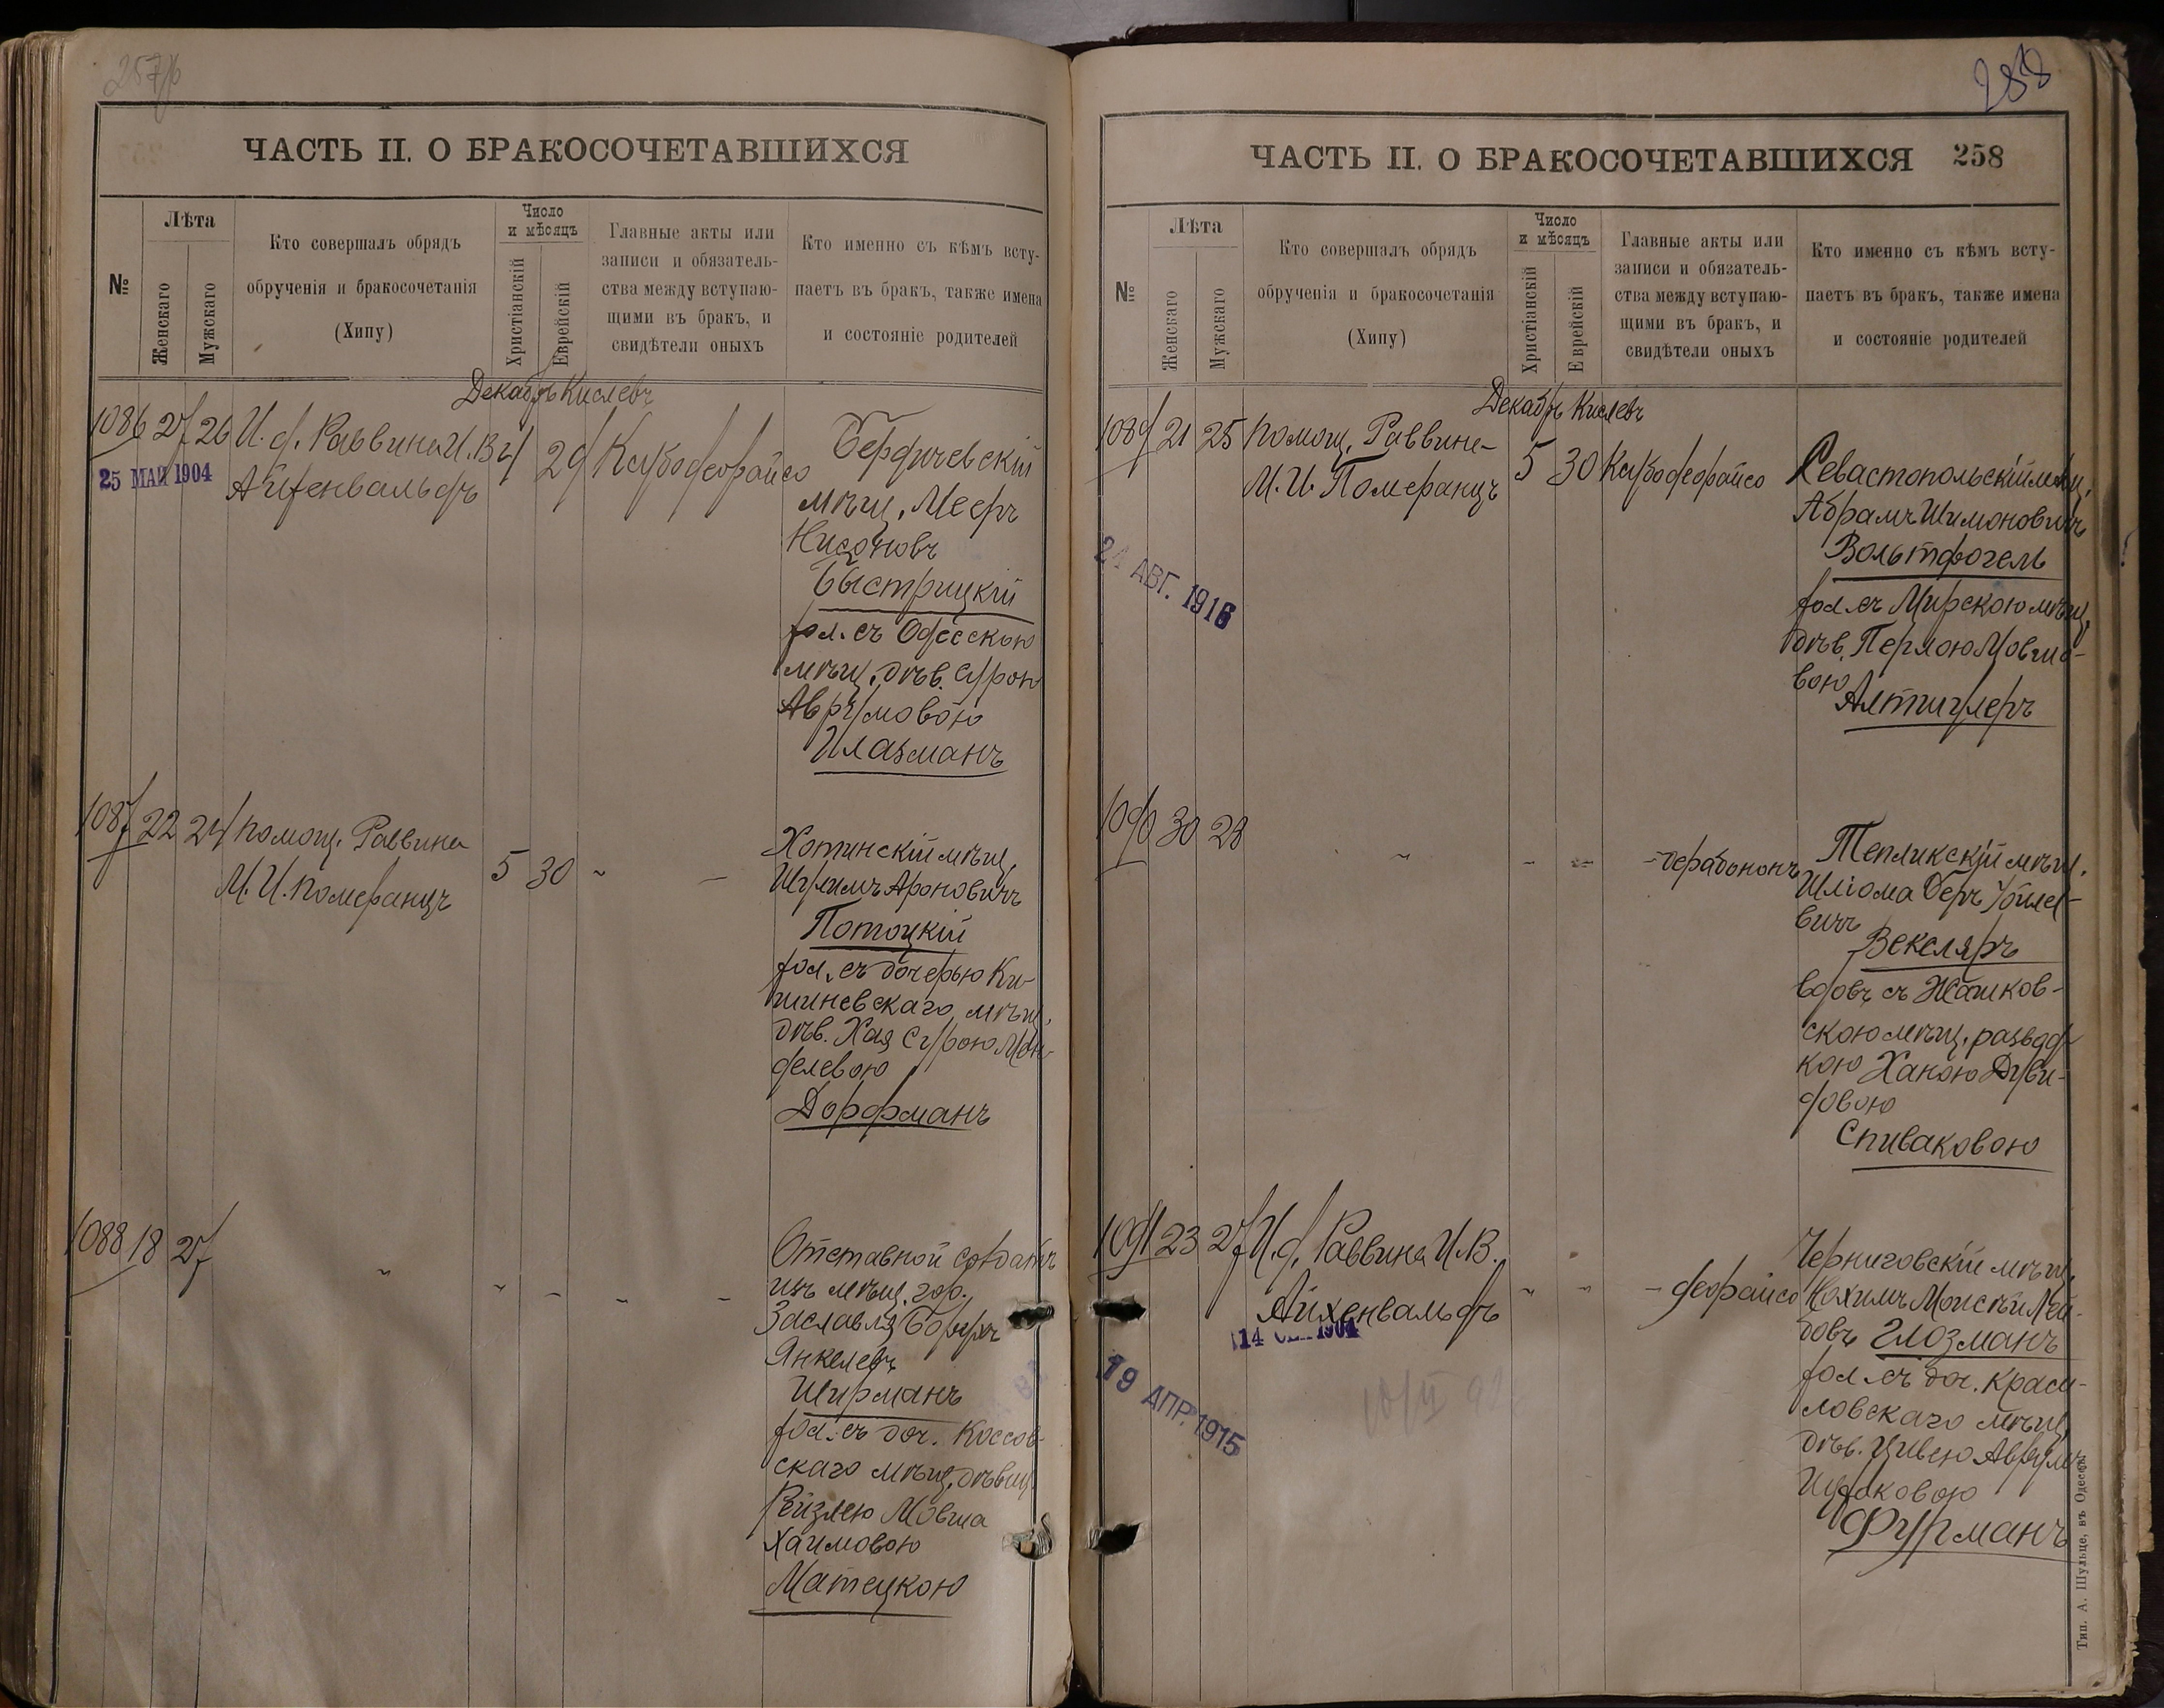 257/б
ЧАСТЬ II. О БРАКОСОЧЕТАВШИХСЯ
№
Лѣта
Женскаго
Мужскаго
Кто совершалъ обрядъ
обрученія и бракосочетанія
(Хипу)
Число
и мѣсяцъ
Христіанскій
Еврейскій
Главные акты или
записи и обязатель-
ства между вступаю-
щими въ бракъ, и
свидѣтели оныхъ
Кто именно съ кѣмъ всту-
паетъ въ бракъ, также имена
и состояніе родителей
Декабрь Кислевъ
1086 27 26 И. д. Раввина И. В.
Айхенвальдъ
4 29
25 МАЙ 1904
Бердичевскій
мѣщ. Мееръ
Нисоновъ
Быстрицкій
хол. съ Одесскою
мѣщ. дѣв. Сурою
Аврумовою
Глазманъ
1087 22 24 помощ. Раввина
М. И. Померанцъ
5 30 " —
Хотинскій мѣщ.
Шулимъ Ароновичъ
Потоцкій
хол. съ дочерью Ки-
шиневскаго мѣщ.
дѣв. Хая Сурою Мен-
делевою
Дорфманъ
1088 18 27 " " " " —
Отставной солдатъ
изъ мѣщ. гор.
Заславля Борухъ
Янкелевъ
Ширманъ
хол. съ доч. Коссов-
скаго мѣщ. дѣвиц.
Рейзлею Мовша
Хаимовою
Матецкою
288
ЧАСТЬ II. О БРАКОСОЧЕТАВШИХСЯ 258
№
Лѣта
Женскаго
Мужскаго
Кто совершалъ обрядъ
обрученія и бракосочетанія
(Хипу)
Число
и мѣсяцъ
Христіанскій
Еврейскій
Главные акты или
записи и обязатель-
ства между вступаю-
щими въ бракъ, и
свидѣтели оныхъ
Кто именно съ кѣмъ всту-
паетъ въ бракъ, также имена
и состояніе родителей
Декабрь Кислевъ
1089 21 25 помощ. Раввина
М. И. Померанцъ
5 30
24 АВГ. 1916
Севастопольскій мѣщ.
Абрамъ Шимоновичъ
Вольтфогель
хол. съ Мирскою мѣщ.
дѣв. Перлою Мовшо-
вою
Алтшулеръ
1090 30 28 " " " - дерабононъ
Тепликскій мѣщ.
Шліома Беръ Іойле-
вичъ
Векслярь
вдовъ съ Жашков-
скою мѣщ. развод-
кою Ханою Дуви-
довою
Спиваковою
1091 23 27 И. д. Раввина И. В.
Айхенвальдъ
" " - деорайсо
19 АПР. 1915
Черниговскій мѣщ.
Нохимъ Моисей Лей-
бовъ Глозманъ
хол. съ доч. Краси-
ловскаго мѣщ.
дѣв. Цивею Аврумъ
Ицковою
Фурманъ
Тип. А. Шульце, въ Одессѣ